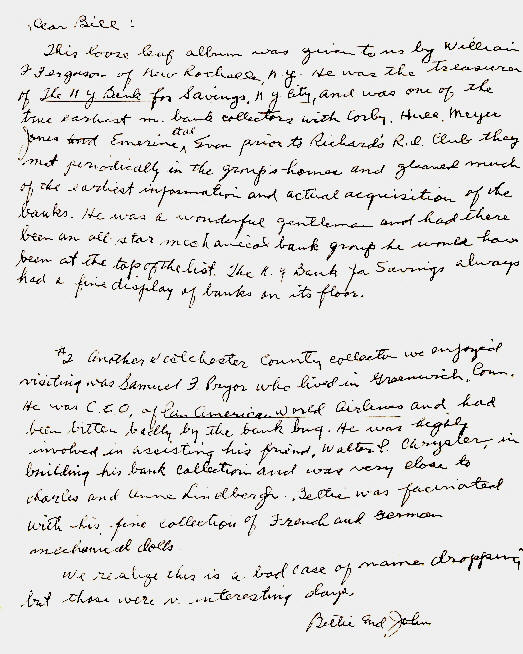 Dear Bill:
This loose leaf album was given to us by William
F Ferguson of New Rochelle, N.Y. He was the treasurer
of The N Y Bank for Savings, N Y City, and was one of the
true earliest m. bank collectors with Corby, Hull, Meyer
Jones and Emerine, et al. Even prior to Richard's R.d. Club they
met periodically in the groups homes and gleaned much
of the earliest information and actual acquisition of the
banks. He was a wonderful gentleman and had there
been an all star mechanical bank group he would have
been at the top of the list. The N. Y Bank for Savings always
had a fine display of banks on its floor.
#2 Another Westchester County collector we enjoyed
visiting was Samuel F Pryor who lived in Greenwich, Conn.
He was C.E.O. of Pan American World Airlines and had
been bitten badly by the bank bug. He was highly
involved in assisting his friend, Walter P. Chrysler, in
building his bank collection and was very close to
Charles and Anne Lindbergh. Bettie was facinated
with his fine collection of French and German
mechanical dolls
We realize this is a bad case of name dropping
but those were v. interesting days.
Bettie and John